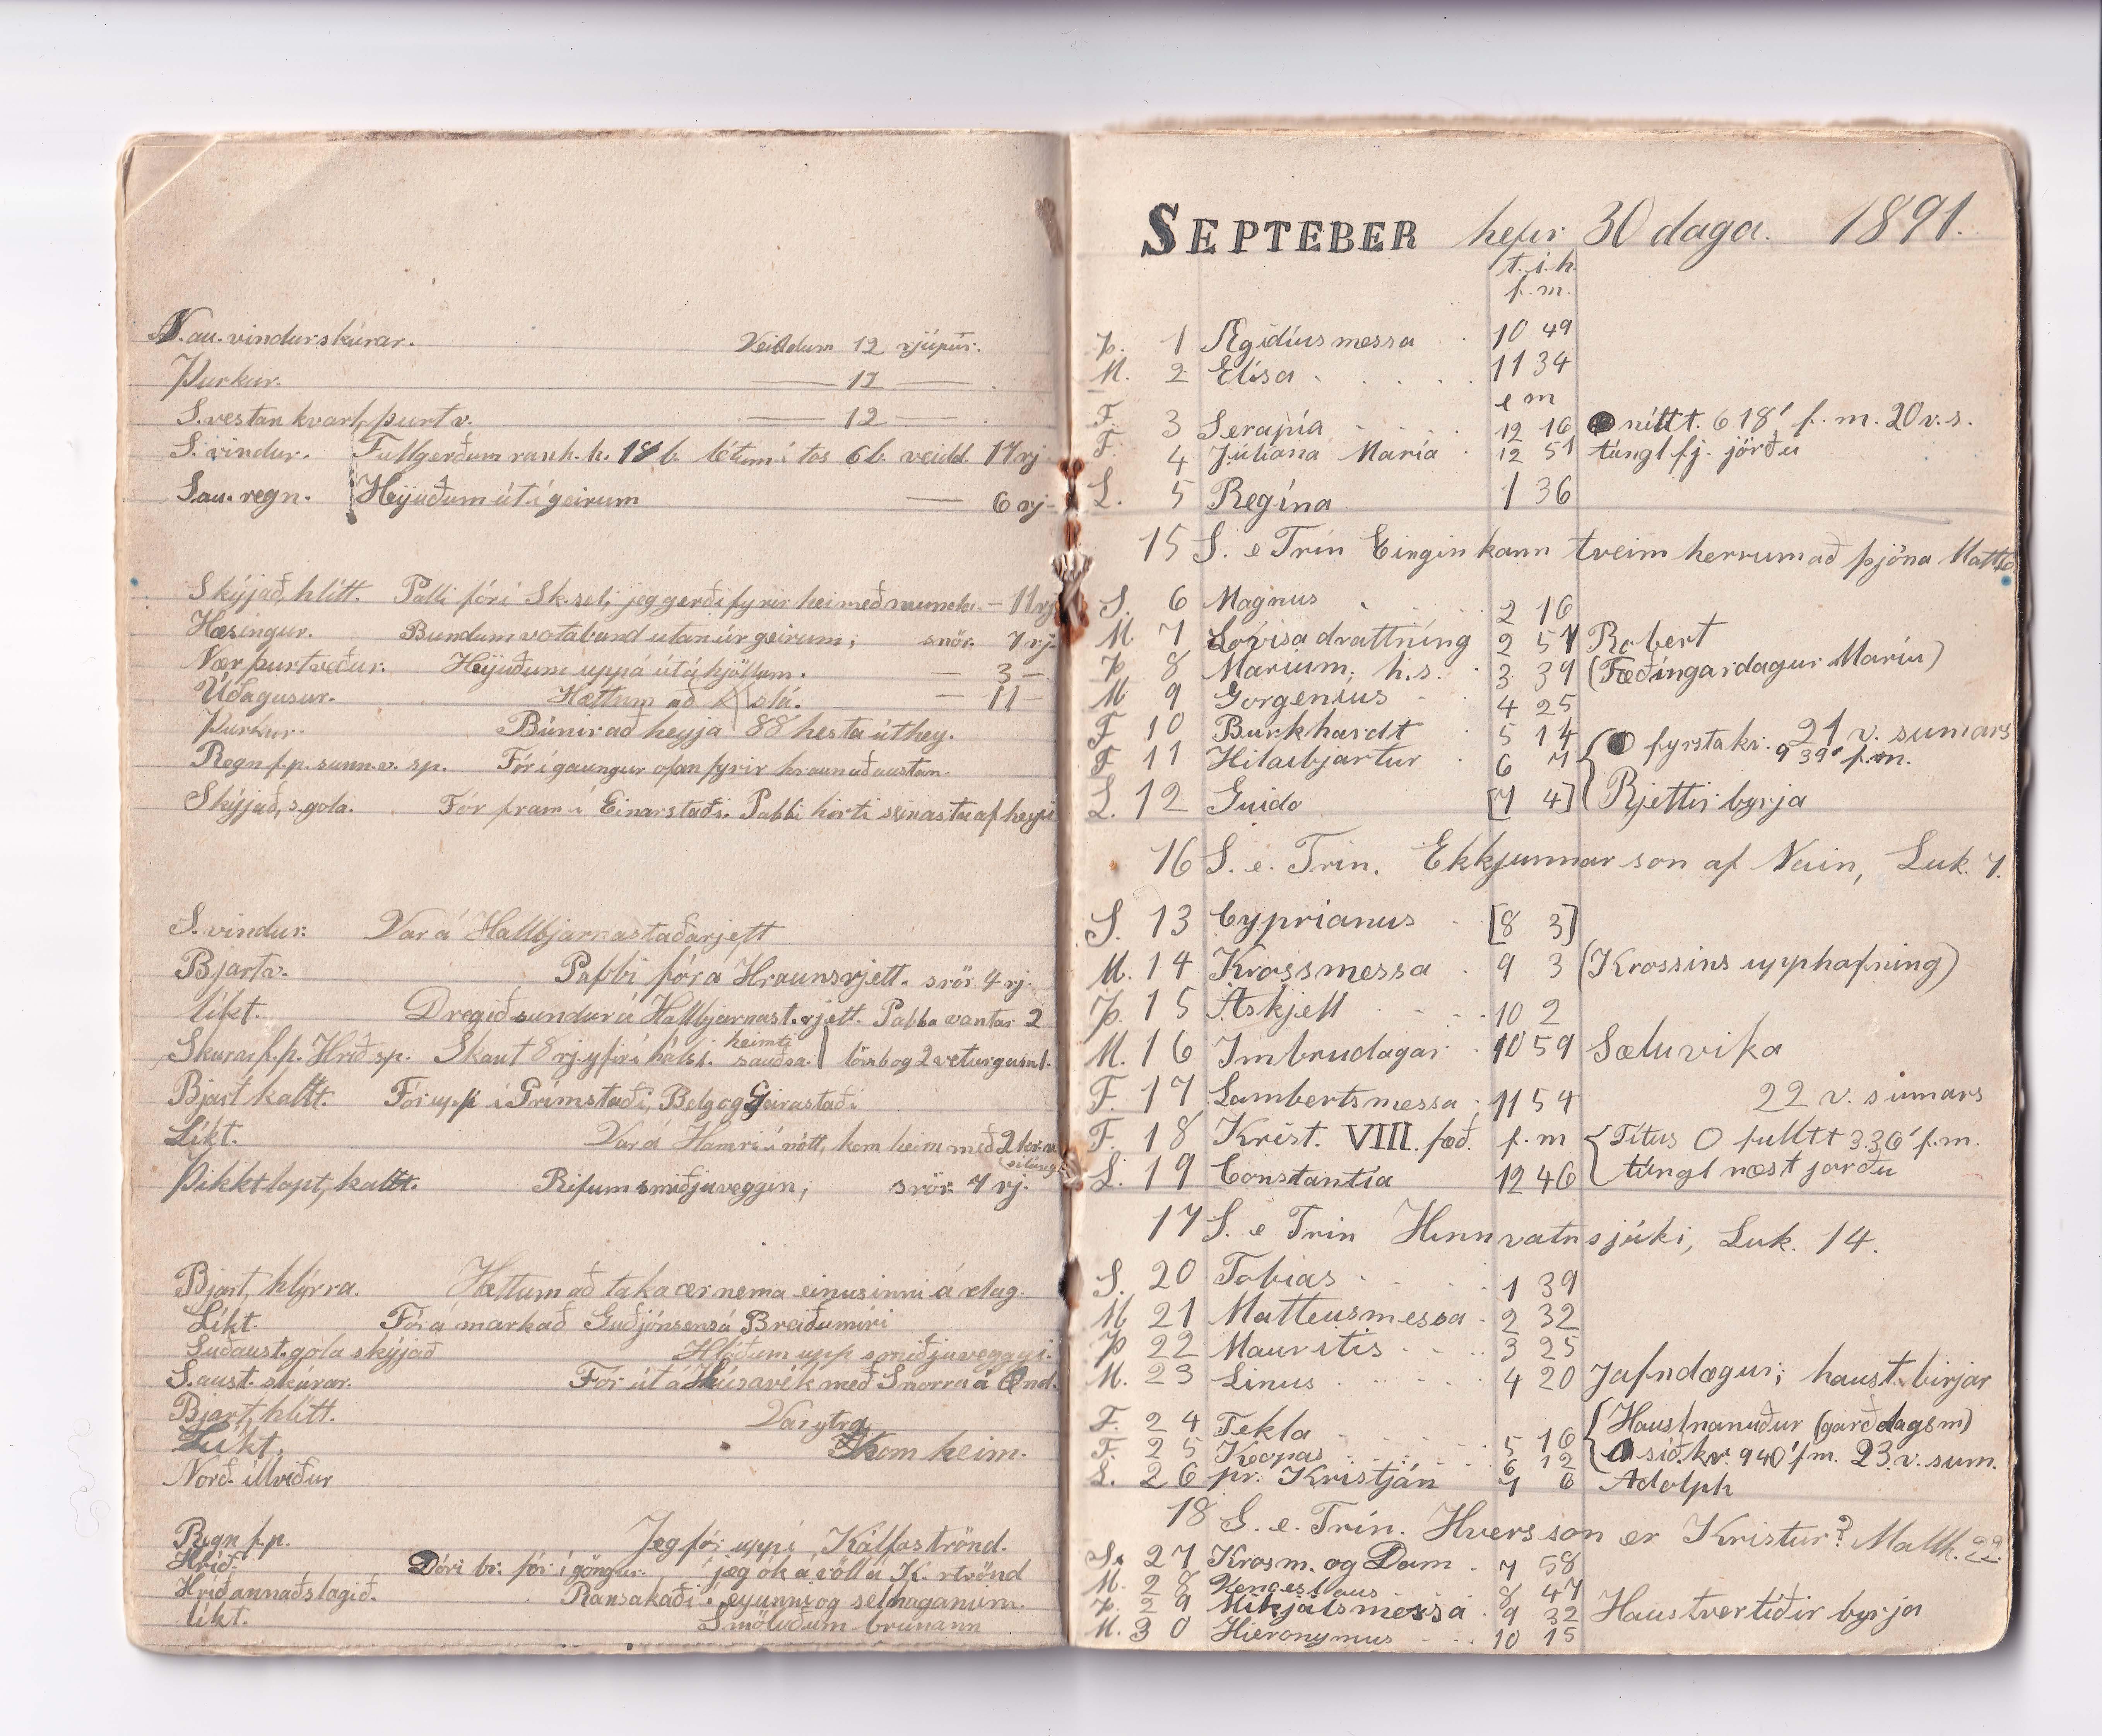 N.au.vindur skúrar. Veiddum 12 rjúpur.
Þurkur. — 12 — .
S.vestan kvart, þurt v. — 12 — .
S. vindur. Fullgerðum h. 18 b. létum í tos 6 b. veidd. 17 rj.
S.au. regn. Heyjuðum út í geirum — 6 rj.
Skýjað, hlítt. Palli fór í Sk.sel, jeg gerði fyrir hei með — 11 rj.
Hæsingur. Bundum votaband utan úr geirum; snör. 7 rj.
Nær þurt veður. Heyjuðum uppá útá hjöllum. — 3 —
Úðagusur. Hættum að slá. — 11 —
Þurkur. Búnir að heyja 88 hesta úthey.
Regn f.p. sunn.v. sp. Fór í gaungur ofan fyrir hraun að austan.
Skýjað, s.gola. Fór fram í Einarstaði. Pabbi hirti seinasta af heyi
S. vindur. Var á Hallbjarnastaðarjett
Bjartv. Pabbi fór á Hraunsrjett. snör. 4 rj.
líkt. Dregið sundur á Hallbjarnast.rjett. Pabba vantar 2
heimti
Skúrar f.p. Hríð sp. Skaut 8 rj. yfir í hálsi. sauðsa. lömb og 2 veturgaml.
Bjart kallt. Fór upp í Grímstaði, Belg og Geirastaði
Líkt. Var á Hamri í nótt, kom heim með 2 kr. v.
(silung)
Þikkt lopt, kallt. Rifum smiðjuveggin; snör. 7 rj.
Bjart, hlýrra. Hættum að taka ær nema einusinni á dag.
Líkt. Fór á markað Guðjónsens á Breiðumíri
Suðaust.gola skýjað Hlóðum upp smiðjuveggi.
S.aust. skúrar. Fór út á Húsavík með Snorra á Önd.
Bjart, hlítt. Var ytra
Líkt. Kom heim.
Norð. illviður
Regn f.p. Jeg fór uppí Kálfaströnd.
Hríð. Dóri br. fór í göngur. jeg ók á völl á K. strönd
Hríð annaðslagið. Ransakaði í eyunni og selhaganum.
líkt. Smöluðum brunann
SEPTEBER hefir 30 daga. 1891.
t. í. h.
f. m.
Þ. 1 Ægidíusmessa . 10 49
M. 2 Elísa . . . . 11 34
e m
F. 3 Serapía . . . 12 16 nítt t. 6 18' f. m. 20 v. s.
F. 4 Júliana María . 12 51 túngl fj. jörðu
L. 5 Regína 1 36
15 S. e Trin Eingin kann tveim herrum að þjóna Matt 6
S. 6 Magnus . . . . 2 16
M. 7 Lovísa drattníng 2 57 Robert
Þ. 8 Maríum. h. s. . 3 39 (Fæðíngardagur Maríu)
M. 9 Gorgenius . . 4 25
F. 10 Burkhardt . 5 14 21 v. sumars
F. 11 Hilarbjartur . 6 7 fyrsta kv. 9 39' f.m.
L. 12 Guido [7 4] Rjettir byrja
16 S. e. Trin. Ekkjunnar son af Nain, Luk. 7.
S. 13 Cyprianus . . [8 3]
M. 14 Krossmessa . 9 3 (Krossins upphafning)
Þ. 15 Askjell . . . . 10 2
M. 16 Imbrudagar . 10 59 Sæluvika
F. 17 Lambertsmessa . 11 54 22 v. sumars
F. 18 Krist. VIII. fæð. f. m Títus O fullt t 3.36' f.m.
L. 19 Constantía 12 46 túngl næst jörðu
17 S. e Trin Hinn vatnsjúki, Luk. 14.
S. 20 Tobias . . . 1 39
M 21 Matteusmessa . 2 32
Þ 22 Mauritis . . . 3 25
M. 23 Linus . . . . . 4 20 Jafndægur; haust birjar
F. 24 Tekla . . . . . 5 16 Haustmánuður (garðdagsm)
F. 25 Kopas . . . . . 6 12 síð.kv. 9 40' f m. 23. v. sum.
L. 26 pr. Kristján 7 6 Adolph
18 S. e. Trin. Hvers son er Kristur? Matth. 22
S. 27 Krosm. og Dam . 7 58
M. 28 Venceslaus . . 8 47
Þ. 29 Mikjálsmessa . 9 32 Haustvertíðir byrja
M. 30 Hieronymus . . . 10 15